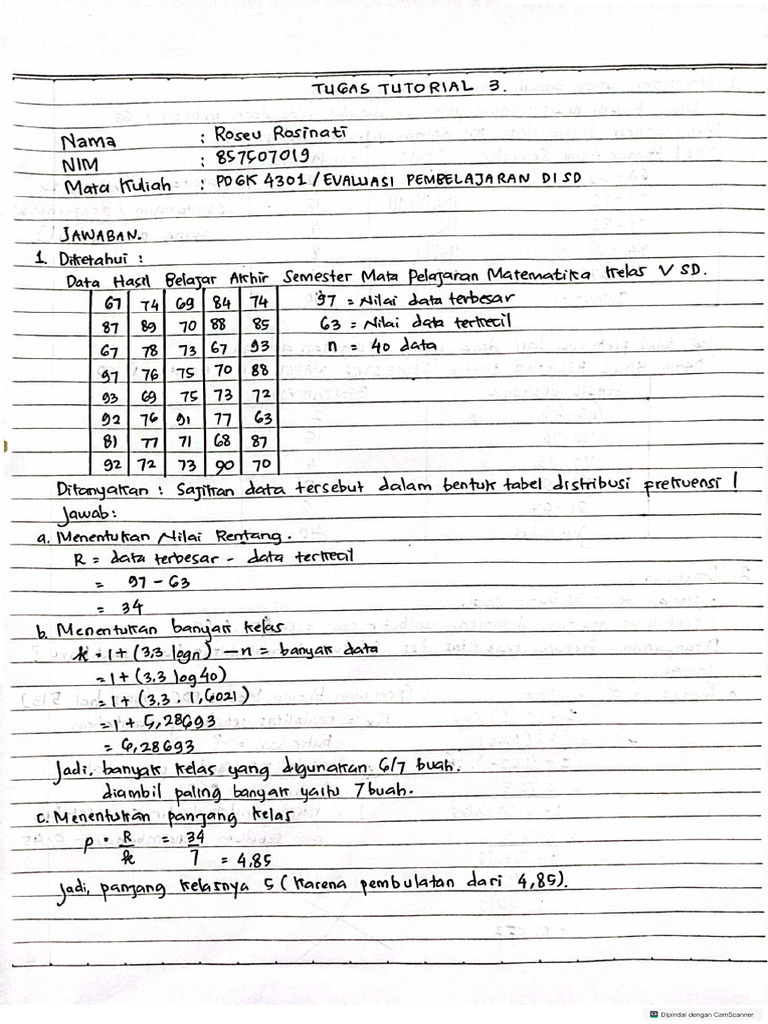 TUGAS TUTORIAL 3.
Nama : Roseu Rosinati
NIM : 857507019
Mata Kuliah : PDGK 4301 / EVALUASI PEMBELAJARAN DI SD
JAWABAN.
1. Diketahui :
Data Hasil Belajar Akhir Semester Mata Pelajaran Matematika Kelas V SD.
67 74 69 84 74 97 = Nilai data terbesar
87 89 70 88 85 63 = Nilai data terkecil
67 78 73 67 93 n = 40 data
97 76 75 70 88
93 69 75 73 72
92 76 91 77 63
81 77 71 68 87
92 72 73 90 70
Ditanyakan : Sajikan data tersebut dalam bentuk tabel distribusi frekuensi !
Jawab :
a. Menentukan Nilai Rentang.
R = data terbesar - data terkecil
= 97 - 63
= 34
b. Menentukan banyak kelas
k = 1 + (3,3 log n) — n = banyak data
= 1 + (3,3 log 40)
= 1 + (3,3 . 1,6021)
= 1 + 5,28693
= 6,28693
Jadi, banyak kelas yang digunakan 6/7 buah.
diambil paling banyak yaitu 7 buah.
c. Menentukan panjang kelas
p = R/k = 34/7 = 4,85
Jadi, panjang kelasnya 5 (karena pembulatan dari 4,85).
Dipindai dengan CamScanner